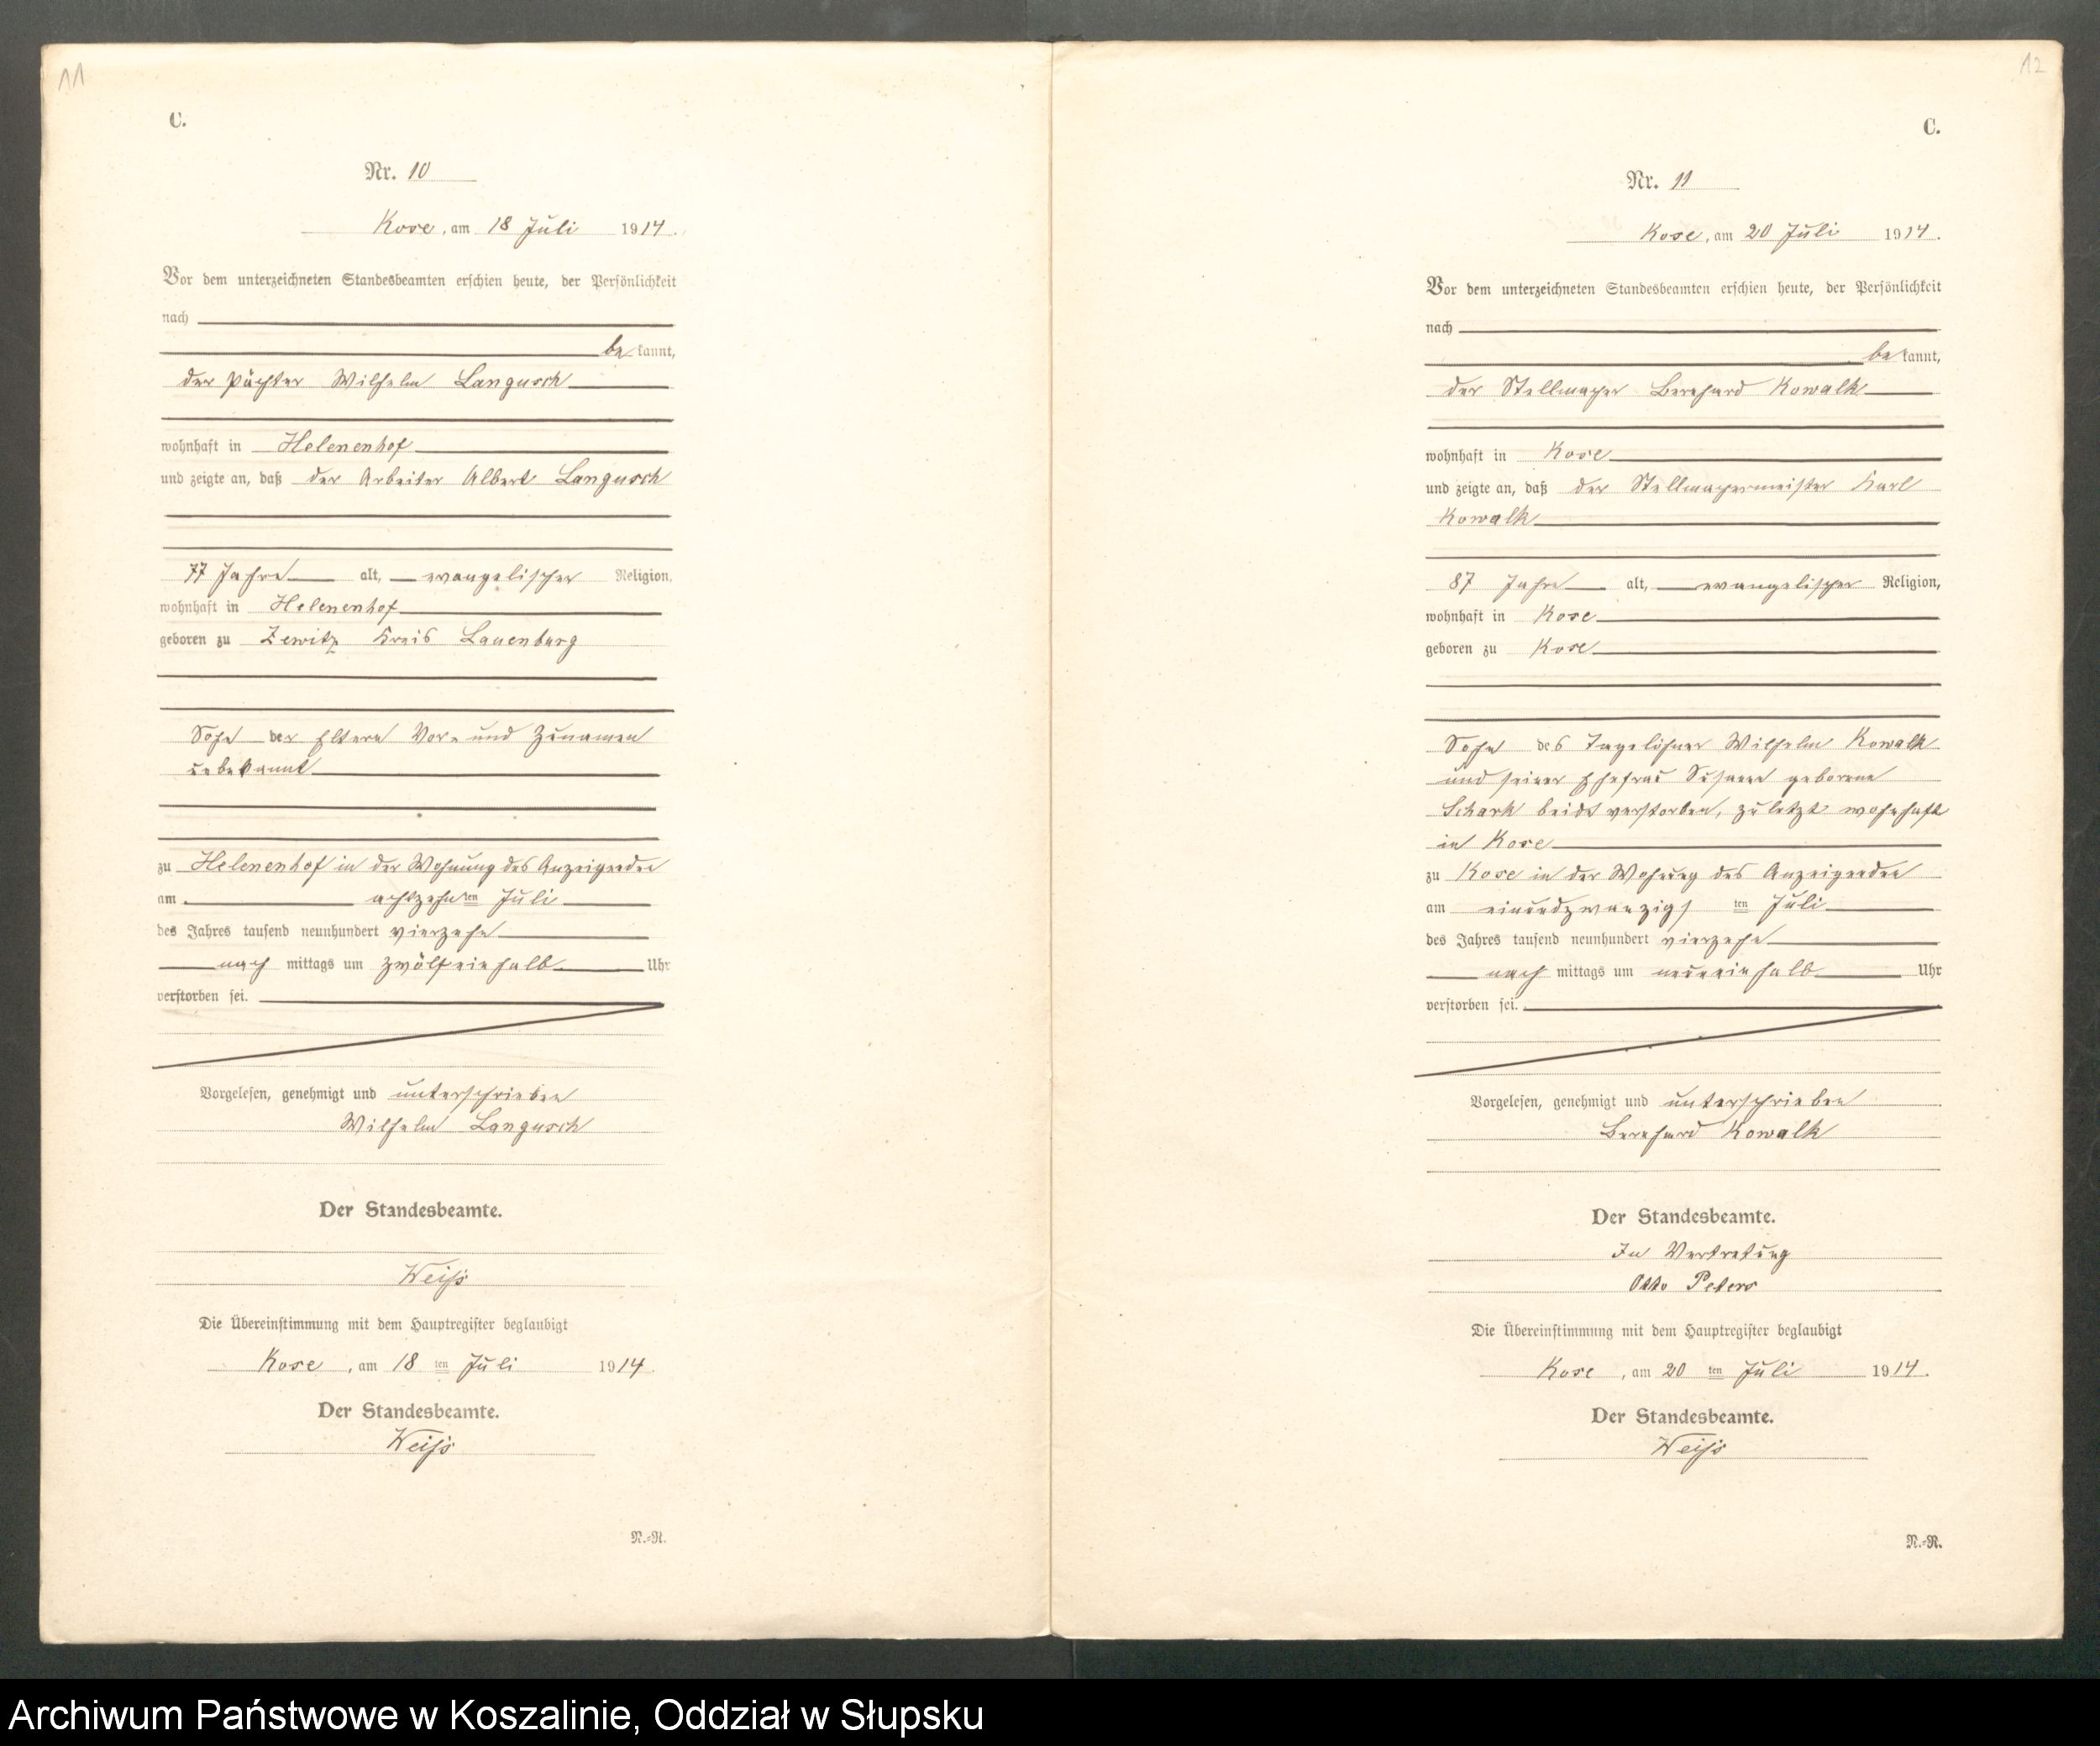 11
C.
Nr. 10
Kose, am 18 Juli 1914.
Vor dem unterzeichneten Standesbeamten erschien heute, der Persönlichkeit
nach
be kannt,
der Pächter Wilhelm Langusch
wohnhaft in Helenenhof
und zeigte an, daß der Arbeiter Albert Langusch
77 Jahre alt, evangelischer Religion,
wohnhaft in Helenenhof
geboren zu Zewitz Kreis Lauenburg
Sohn der Eltern Vor- und Zunamen
unbekannt
zu Helenenhof in der Wohnung des Anzeigenden
am achtzehnten Juli
des Jahres tausend neunhundert vierzehn
nach mittags um zwölfeinhalb Uhr
verstorben sei.
Vorgelesen, genehmigt und unterschrieben
Wilhelm Langusch
Der Standesbeamte.
Weiß
Die Übereinstimmung mit dem Hauptregister beglaubigt
Kose, am 18 ten Juli 1914.
Der Standesbeamte.
Weiß
N.-R.
12
C.
Nr. 11
Kose, am 20 Juli 1914.
Vor dem unterzeichneten Standesbeamten erschien heute, der Persönlichkeit
nach
be kannt,
der Stellmacher Bernhard Kowalk
wohnhaft in Kose
und zeigte an, daß der Stellmachermeister Karl
Kowalk
87 Jahre alt, evangelischer Religion,
wohnhaft in Kose
geboren zu Kose
Sohn des Tagelöhner Wilhelm Kowalk
und seiner Ehefrau Susanne geborene
Schark beide verstorben, zuletzt wohnhaft
in Kose
zu Kose in der Wohnung des Anzeigenden
am einundzwanzigs ten Juli
des Jahres tausend neunhundert vierzehn
nach mittags um neuneinhalb Uhr
verstorben sei.
Vorgelesen, genehmigt und unterschrieben
Bernhard Kowalk
Der Standesbeamte.
In Vertretung
Otto Peters
Die Übereinstimmung mit dem Hauptregister beglaubigt
Kose, am 20 ten Juli 1914.
Der Standesbeamte.
Weiß
N.-R.
Archiwum Państwowe w Koszalinie, Oddział w Słupsku